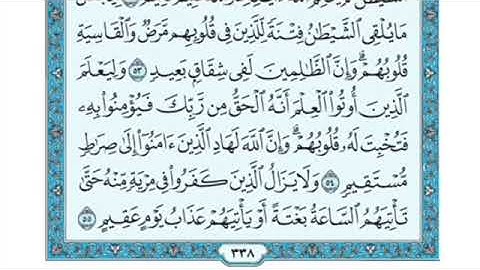 مَا يُلْقِى ٱلشَّيْطَٰنُ فِتْنَةً لِّلَّذِينَ فِى قُلُوبِهِم مَّرَضٌ وَٱلْقَاسِيَةِ
قُلُوبُهُمْ ۗ وَإِنَّ ٱلظَّٰلِمِينَ لَفِى شِقَاقٍۭ بَعِيدٍ ٥٣ وَلِيَعْلَمَ
ٱلَّذِينَ أُوتُوا۟ ٱلْعِلْمَ أَنَّهُ ٱلْحَقُّ مِن رَّبِّكَ فَيُؤْمِنُوا۟ بِهِۦ
فَتُخْبِتَ لَهُۥ قُلُوبُهُمْ ۗ وَإِنَّ ٱللَّهَ لَهَادِ ٱلَّذِينَ ءَامَنُوٓا۟ إِلَىٰ صِرَٰطٍ
مُّسْتَقِيمٍ ٥٤ وَلَا يَزَالُ ٱلَّذِينَ كَفَرُوا۟ فِى مِرْيَةٍ مِّنْهُ حَتَّىٰ
تَأْتِيَهُمُ ٱلسَّاعَةُ بَغْتَةً أَوْ يَأْتِيَهُمْ عَذَابُ يَوْمٍ عَقِيمٍ ٥٥
٣٣٨